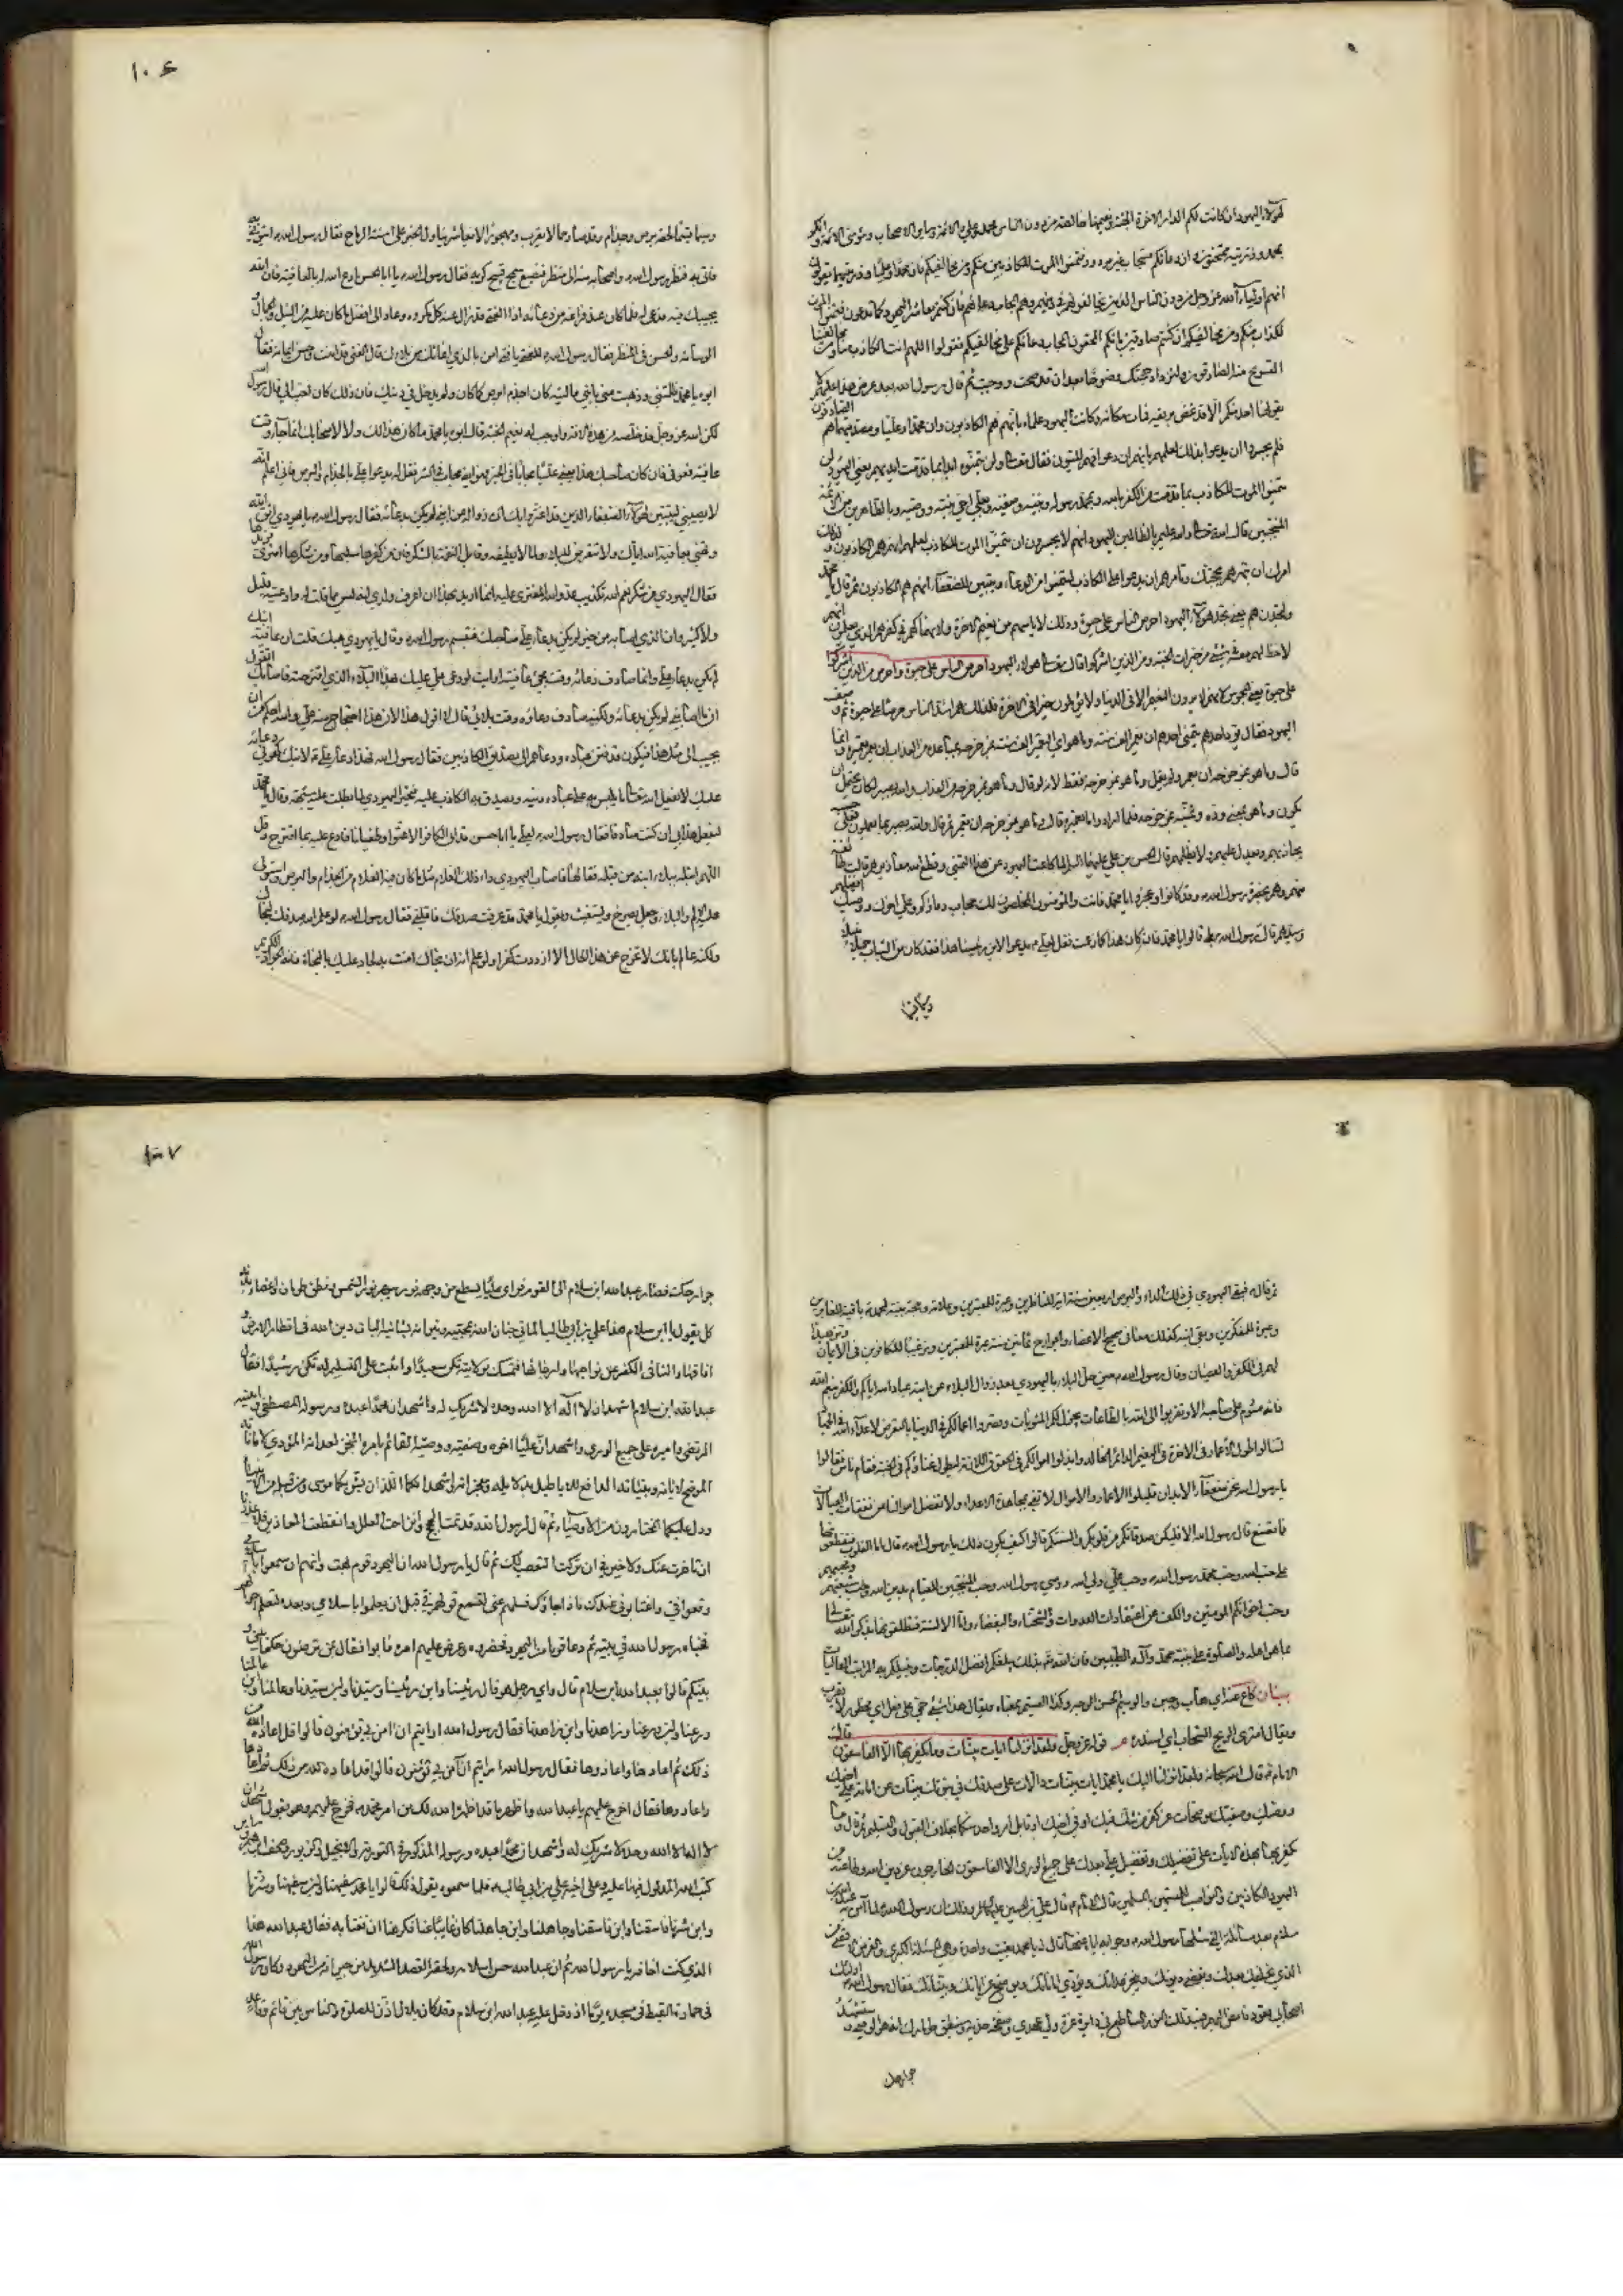 لهؤلاء اليهود ان كانت لكم الدار الاخرة الجنة ونعيمها خالصة من دون الناس محمد وعلي والائمة وساير الاصحاب ومؤمني الامة وانكم
بمحمد وذريته ممتحنون وان دعائكم مستجاب غير مردود فتمنوا الموت للكاذبين منكم ومن مخالفيكم فان محمدا وعليا وذريتهما يقولون
انهم اولياء الله عز وجل من دون الناس الذين يخالفونهم في دينهم وهم المجاب دعاؤهم فان كنتم معاشر اليهود كما تدعون فتمنوا الموت
للكذاب منكم ومن مخالفيكم ان كنتم صادقين بانكم المحقون المجاب دعائكم على مخالفيكم فقولوا اللهم امت الكاذب منا ومن مخالفينا
ليستريح منه الصادقون ولتزداد حجتك وضوحا بعد ان قد صحت ووجبت ثم قال رسول الله بعد عرض هذا عليهم لا
يقولها احد منكم الا قد غص بريقه فمات مكانه وكانت اليهود علماء بانهم هم الكاذبون وان محمدا وعليا ومصدقيهما هم الصادقون
فلم يجسروا ان يدعوا بذلك لعلمهم بانهم ان دعوا فهم الميتون فقال تعالى ولن يتمنوه ابدا بما قدمت ايديهم يعني اليهود لن
يتمنوا الموت للكاذب بما قدمت من الكفر بالله وبمحمد رسوله ونبيه وصفيه وبعلي اخي نبيه ووصيه وبالطاهرين من الائمة
المنتجبين قال الله تعالى والله عليم بالظالمين اليهود انهم لا يجسرون ان يتمنوا الموت للكاذب لعلمهم انهم هم الكاذبون ولذلك
امرك ان تبهرهم بحجتك وتامرهم ان يدعوا على الكاذب ليمتنعوا من الدعاء ويتبين للضعفاء انهم هم الكاذبون ثم قال يا محمد
ولتجدنهم يعني تجد هؤلاء اليهود احرص الناس على حيوة وذلك لاياسهم من نعيم الاخرة ولانهماكهم في كفرهم الذي يعلمون انهم
لا حظ لهم معه في شيء من خيرات الجنة ومن الذين اشركوا قال تعالى هؤلاء اليهود احرص الناس على حيوة واحرص من الذين اشركوا
على حيوة يعني المجوس لانهم لا يرون النعيم الا في الدنيا ولا ياملون خيرا في الاخرة فلذلك هم اشد الناس حرصا على حيوة ثم وصف
اليهود فقال يود احدهم يتمنى احدهم ان يعمر الف سنة وما هو اي التعمير الف سنة بمزحزحه بمباعده من العذاب ان يعمر تعميره وانما
قال وما هو بمزحزحه ان يعمر ولم يقل وما هو بمزحزحه فقط لانه لو قال وما هو بمزحزحه من العذاب والله بصير لكان يحتمل ان
يكون وما هو يعني وده وتمنيه بمزحزحه فلما اراد وما تعميره قال وما هو بمزحزحه ان يعمر ثم قال والله بصير بما يعملون فعلى حسبه
يجازيهم ويعدل عليهم ولا يظلمهم قال الحسن بن علي عليهما السلام لما كاعت اليهود عن هذا التمني وقطع الله معاذيرهم قالت طائفة
منهم وهم بحضرة رسول الله وقد كاعوا وعجزوا يا محمد فانت والمؤمنون المخلصون لك مجاب دعاؤكم وعلي اخوك ووصيك افضلهم
وسيدهم قال رسول الله بلى قالوا يا محمد فان كان هذا كما زعمت فقل لعلي يدعو لابن رئيسنا هذا فقد كان من الشباب جميلا نبيلا
وسيما قسيما
١٠٦
وسيما قسيما لحقه برص وجذام وقد صار حمى لا يقرب ومهجورا لا يعاشر يناول الخبز على اسنة الرماح فقال رسول الله ائتوني به
فاتي به فنظر رسول الله واصحابه منه الى منظر فضيع سمج قبيح كريه فقال رسول الله يا ابا الحسن ادع الله له بالعافية فان الله
يجيبك فيه فدعا له فلما كان عند فراغه من دعائه اذا الفتى قد زال عنه كل مكروه وعاد الى افضل ما كان عليه من النبل والجمال
الوسامة والحسن في المنظر فقال رسول الله للفتى يا فتى امن بالذي اغاثك من بلائك قال الفتى قد امنت وحسن ايمانه فقال
ابوه يا محمد ظلمتني وذهبت مني بابني يا ليته كان اجذم ابرص كما كان ولم يدخل في دينك فان ذلك كان احب الي قال رسول
لكن الله عز وجل قد خلصه من هذه الافة واوجب له نعيم الجنة قال ابوه يا محمد ما كان هذا لك ولا لاصحابك انما جاء وقت
عافيته فعوفي فان كان صاحبك هذا يعني عليا مجابا في الخير فهو ايضا مجاب في الشر فقل له يدعو علي بالجذام والبرص فاني اعلم انه
لا يصيبني ليتبين لهؤلاء الضعفاء الذين قد اغتروا بك ان زواله عن ابني لم يكن بدعائه فقال رسول الله يا يهودي اتق الله
وتهنى بعافية الله اياك ولا تتعرض للبلاء ولما لا تطيقه وقابل النعمة بالشكر فان من كفرها سلبها ومن شكرها امترى مزيدها
فقال اليهودي من شكر نعم الله تكذيب عدو الله المفتري عليه انما اريد بهذا ان اعرف ولدي انه ليس مما قلت له وادعيته قليل
ولا كثير وان الذي اصابه من خير لم يكن بدعاء علي صاحبك فتبسم رسول الله وقال يا يهودي هبك قلت ان عافية ابنك
لم يكن بدعاء علي وانما صادف دعاؤه وقت مجيء عافيته ارايت لو دعى علي عليك بهذا البلاء الذي اقترحته فاصابك اتقول
ان ما اصابني لم يكن بدعائه ولكنه صادف دعاؤه وقت بلائي قال لا اقول هذا لان هذا احتجاج مني على عدو الله في دين الله واحتجاج منه علي والله احكم من ان
يجيب الى مثل هذا فيكون قد فتن عباده ودعاهم الى تصديق الكاذبين فقال رسول الله فهذا في دعاء علي لابنك كهو في دعائه
عليك لا يفعل الله تعالى ما يلبس به على عباده دينه ويصدق به الكاذب عليه فتحير اليهودي لما بطلت عليه شبهته وقال يا محمد
ليفعل هذا بي ان كنت صادقا فقال رسول الله لعلي يا ابا الحسن قد ابى الكافر الا عتوا وطغيانا فادع عليه بما اقترح وقل
اللهم ابتله ببلاء ابنه من قبله فقالها فاصاب اليهودي داء ذلك الغلام مثل ما كان فيه الغلام من الجذام والبرص واستولى
عليه الالم والبلاء وجعل يصرخ ويستغيث ويقول يا محمد قد عرفت صدقك فاقلني فقال رسول الله لو علم الله صدقك لنجاك
ولكنه عالم بانك لا تخرج عن هذا الحال الا ازددت كفرا ولو علم انه ان نجاك امنت به لجاد عليك بالنجاة فانه الجواد الكريم
ثم قال فبقي اليهودي في ذلك الداء والبرص اربعين سنة اية للناظرين وعبرة للمعتبرين وعلامة وحجة بينة لمحمد باقية للغابرين
وعبرة للمفكرين وبقي ابنه كذلك معافى صحيح الاعضاء والجوارح ثمانين سنة عبرة للمعتبرين وترغيبا للكافرين في الايمان وتزهيدا
لهم في الكفر والعصيان وقال رسول الله حين حل البلاء باليهودي بعد زوال البلاء عن ابنه عباد الله اياكم والكفر بنعم الله
فانه مشوم على صاحبه الا وتقربوا الى الله بالطاعات يجزل لكم المثوبات وقصروا اعماركم في الدنيا بالتعرض لاعداء الله في الجهاد
لتنالوا طول الاعمار في الاخرة في النعيم الدائم الخالد وابذلوا اموالكم في الحقوق اللازمة ليطول غناؤكم في الجنة فقام ناس فقالوا
يا رسول الله نحن ضعفاء الابدان قليلوا الاعمار والاموال لا نفي بمجاهدة الاعداء ولا تفضل اموالنا عن نفقات العيالات
فما نصنع قال رسول الله الا فليكن صدقاتكم من قلوبكم والسنتكم قالوا كيف يكون ذلك يا رسول الله قال اما القلوب فتقطعونها
على حب الله وحب محمد رسول الله وحب علي ولي الله ووصي رسول الله وحب المنتجبين للقيام بدين الله وحب شيعتهم ومحبيهم
وحب اخوانكم المومنين والكف عن اعتقادات العداوات والشحناء والبغضاء واما الالسنة فتطلقونها بذكر الله تعالى
بما هو اهله والصلوة على نبيه محمد وآله الطيبين فان الله تعالى بذلك يبلغكم افضل الدرجات وينيلكم به المراتب العاليات
بيان كاع عنه اي هاب وجبن والوسيم الحسن الوجه وكذا القسيم بمعناه ويقال هذا شيء حمى على فعل اي محظور لا يقرب
ويقال امترى الريح السحاب اي استدره م قوله عز وجل ولقد انزلنا اليك ايات بينات وما يكفر بها الا الفاسقون قال
الامام قال الله سبحانه ولقد انزلنا اليك يا محمد ايات بينات دالات على صدقك في نبوتك مبينات عن امامة علي اخيك
ووصيك وصفيك موضحات عن كفر من شك فيك او في اخيك او قابل امر واحد منكما بخلاف القبول والتسليم ثم قال وما
يكفر بها بهذه الايات على تفضيلك وتفضيل علي بعدك على جميع الورى الا الفاسقون الخارجون عن دين الله وطاعته من
اليهود الكاذبين والنواصب المتسمين بالمسلمين قال الامام قال علي بن الحسين عليهما السلام وذلك ان رسول الله لما آمن به عبد الله بن
سلام بعد مسائله التي سالها رسول الله وجوابه اياه عنها قال له يا محمد بقيت واحدة وهي المسئلة الكبرى والغرض الاقصى من
الذي يخلفك بعدك ويقضي ديونك وينجز عداتك ويؤدي اماناتك ويوضح عن اياتك وبيناتك فقال رسول الله اولئك
اصحابي قعود فامض اليهم فسيدلك النور الساطع في دائرة غرة ولي عهدي وصفحة خديه وسينطق طومارك بانه هو الوصي وستشهد
جوارحك
١٠٧
جوارحك فصار عبد الله ابن سلام الى القوم فراى عليا يسطع من وجهه نور يبهر نور الشمس ونطق طوماره واعضاء بدنه
كل يقول يا ابن سلام هذا علي بن ابي طالب المالئ جنان الله بمحبيه ونيرانه بشانئيه الباث دين الله في اقطار الارض و
افاقها والنافي الكفر عن نواحيها وارجائها فتمسك بولايته تكن سعيدا واثبت على التسليم له تكن رشيدا فقال
عبد الله ابن سلام اشهد ان لا آله الا الله وحده لا شريك له واشهد ان محمدا عبده ورسوله المصطفى وامينه
المرتضى واميره على جميع الورى واشهد ان عليا اخوه وصفيه ووصيه القائم بامره المنجز لعداته المؤدي لاماناته
الموضح لاياته وبيناته الدافع للاباطيل بدلائله ومعجزاته واشهد انكما اللذان بشر بكما موسى ومن قبله من الانبياء
ودل عليكما المختارون من الاوصياء ثم قال لرسول الله قد تمت الحجج وانزاحت العلل وانقطعت المعاذير فلا عذر لي
ان تاخرت عنك ولا خير في ان تركت التعصب لك ثم قال يا رسول الله ان اليهود قوم بهت وانهم ان سمعوا باسلامي
وقعوا في واغتابوني عندك فاذا جاؤك فسلهم عني لتسمع قولهم في قبل ان يعلموا باسلامي وبعده لتعلم احوالهم
فخباه رسول الله في بيته ثم دعا قوما من اليهود فحضروه وعرض عليهم امره فابوا فقال بمن ترضون حكما بيني و
بينكم قالوا بعبد الله ابن سلام قال واي رجل هو قال رئيسنا وابن رئيسنا وسيدنا وابن سيدنا وعالمنا وابن عالمنا
وورعنا وابن ورعنا وزاهدنا وابن زاهدنا فقال رسول الله ارايتم ان امن بي تؤمنون قالوا قد اعاذه الله من
ذلك ثم اعادها واعادوها فقال رسول الله ارايتم ان آمن بي تؤمنون قالوا قد اعاذه الله من ذلك فاعادها
واعادوها فقال اخرج عليهم يا عبد الله واظهر ما قد اظهر الله لك من امر محمد فخرج عليهم وهو يقول اشهد ان
لا اله الا الله وحده لا شريك له واشهد ان محمدا عبده ورسوله المذكور في التورية والانجيل والزبور وصحف ابراهيم وساير
كتب الله المدلول فيها عليه وعلى اخيه علي بن ابي طالب فلما سمعوه يقول ذلك قالوا يا محمد سفيهنا وابن سفيهنا وشرنا
وابن شرنا وفاسقنا وابن فاسقنا وجاهلنا وابن جاهلنا كان غايبا عنا فكرهنا ان نغتابه فقال عبد الله هذا
الذي كنت اخافه يا رسول الله ثم ان عبد الله حسن اسلامه ولحقه القصد الشديد من جيرانه من اليهود وكان رسول الله
في حمارة القيظ في مسجده يوما اذ دخل عليه عبد الله ابن سلام وقد كان بلال اذن للصلوة والناس بين قائم وقاعد